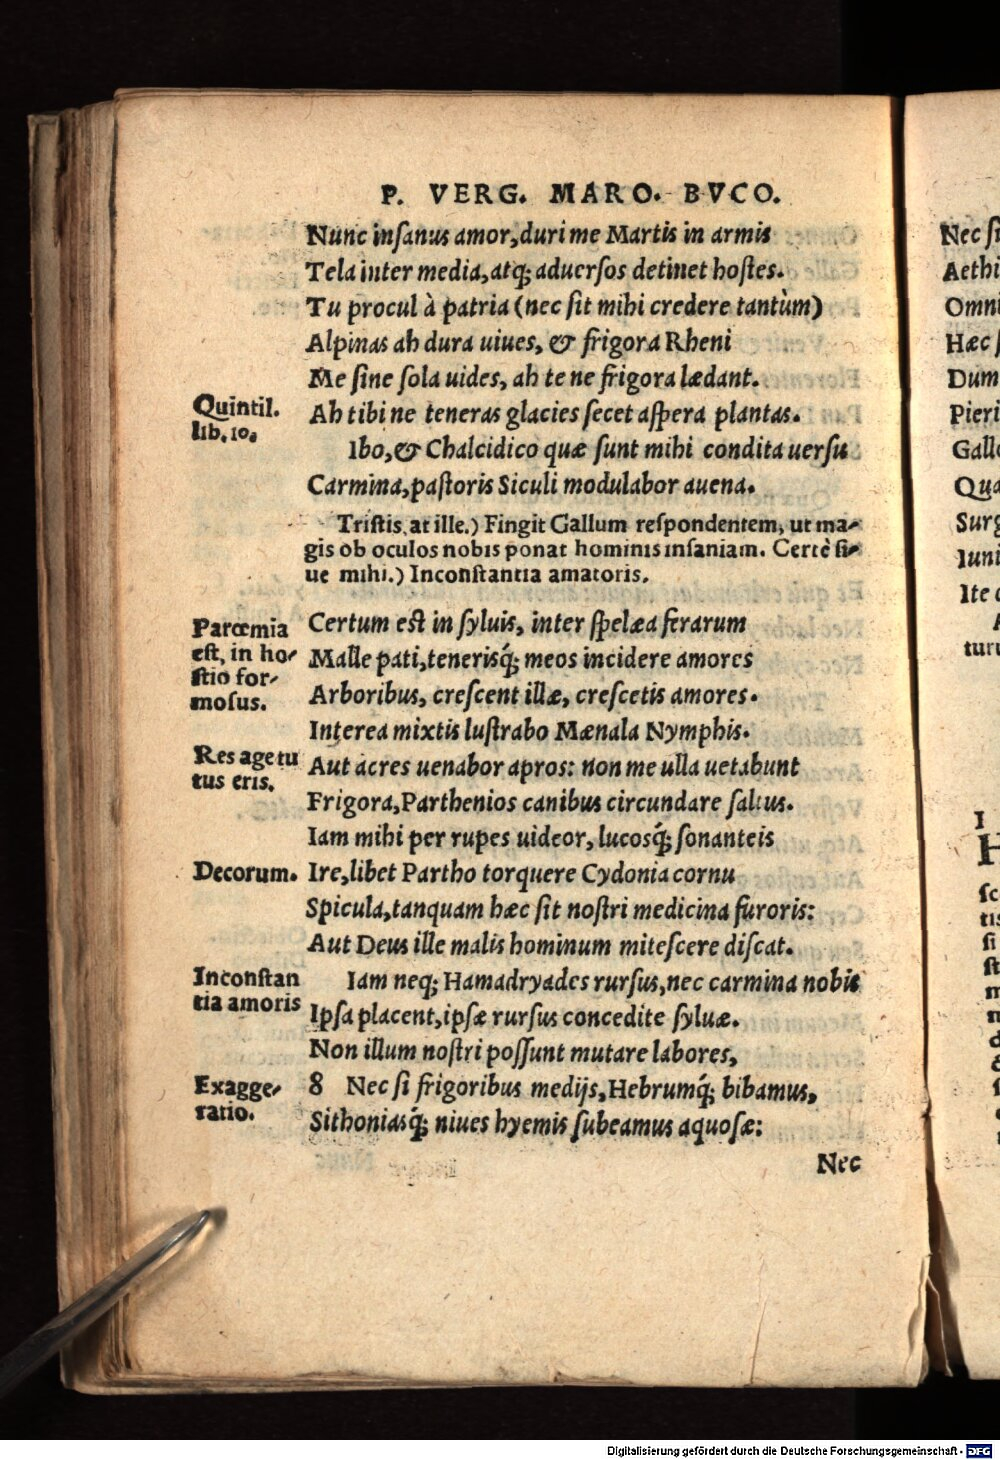 P. VERG. MARO. BVCO.
Nunc inſanus amor, duri me Martis in armis
Tela inter media, atq; aduerſos detinet hoſtes.
Tu procul à patria (nec ſit mihi credere tantùm)
Alpinas ah dura uiues, & frigora Rheni
Me ſine ſola uides, ah te ne frigora lædant.
Quintil.
lib. 10.
Ah tibi ne teneras glacies ſecet aſpera plantas.
Ibo, & Chalcidico quæ ſunt mihi condita uerſu
Carmina, paſtoris Siculi modulabor auena.
Triſtis at ille.) Fingit Gallum reſpondentem, ut ma-
gis ob oculos nobis ponat hominis inſaniam. Certè ſi-
ue mihi.) Inconſtantia amatoris.
Certum eſt in ſyluis, inter ſpelæa ferarum
Parœmia
eſt, in ho-
ſtio for-
moſus.
Malle pati, tenerisq́; meos incidere amores
Arboribus, creſcent illæ, creſcetis amores.
Interea mixtis luſtrabo Mænala Nymphis.
Res age tu
tus eris.
Aut acres uenabor apros: non me ulla uetabunt
Frigora, Parthenios canibus circundare ſaltus.
Iam mihi per rupes uideor, lucosq́; ſonanteis
Decorum.
Ire, libet Partho torquere Cydonia cornu
Spicula, tanquam hæc ſit noſtri medicina furoris:
Aut Deus ille malis hominum miteſcere diſcat.
Inconſtan
tia amoris
Iam neq; Hamadryades rurſus, nec carmina nobis
Ipſa placent, ipſæ rurſus concedite ſyluæ.
Non illum noſtri poſſunt mutare labores,
Exagge-
ratio.
8 Nec ſi frigoribus medijs, Hebrumq́; bibamus,
Sithoniasq́; niues hyemis ſubeamus aquoſæ:
Nec
Nec ſi
Aethi
Omni
Hæc ſ
Dum
Pieri
Gallo
Qua
Surg
Iuni
Ite c
turu
I
H
Digitalisierung gefördert durch die Deutsche Forschungsgemeinschaft - DFG